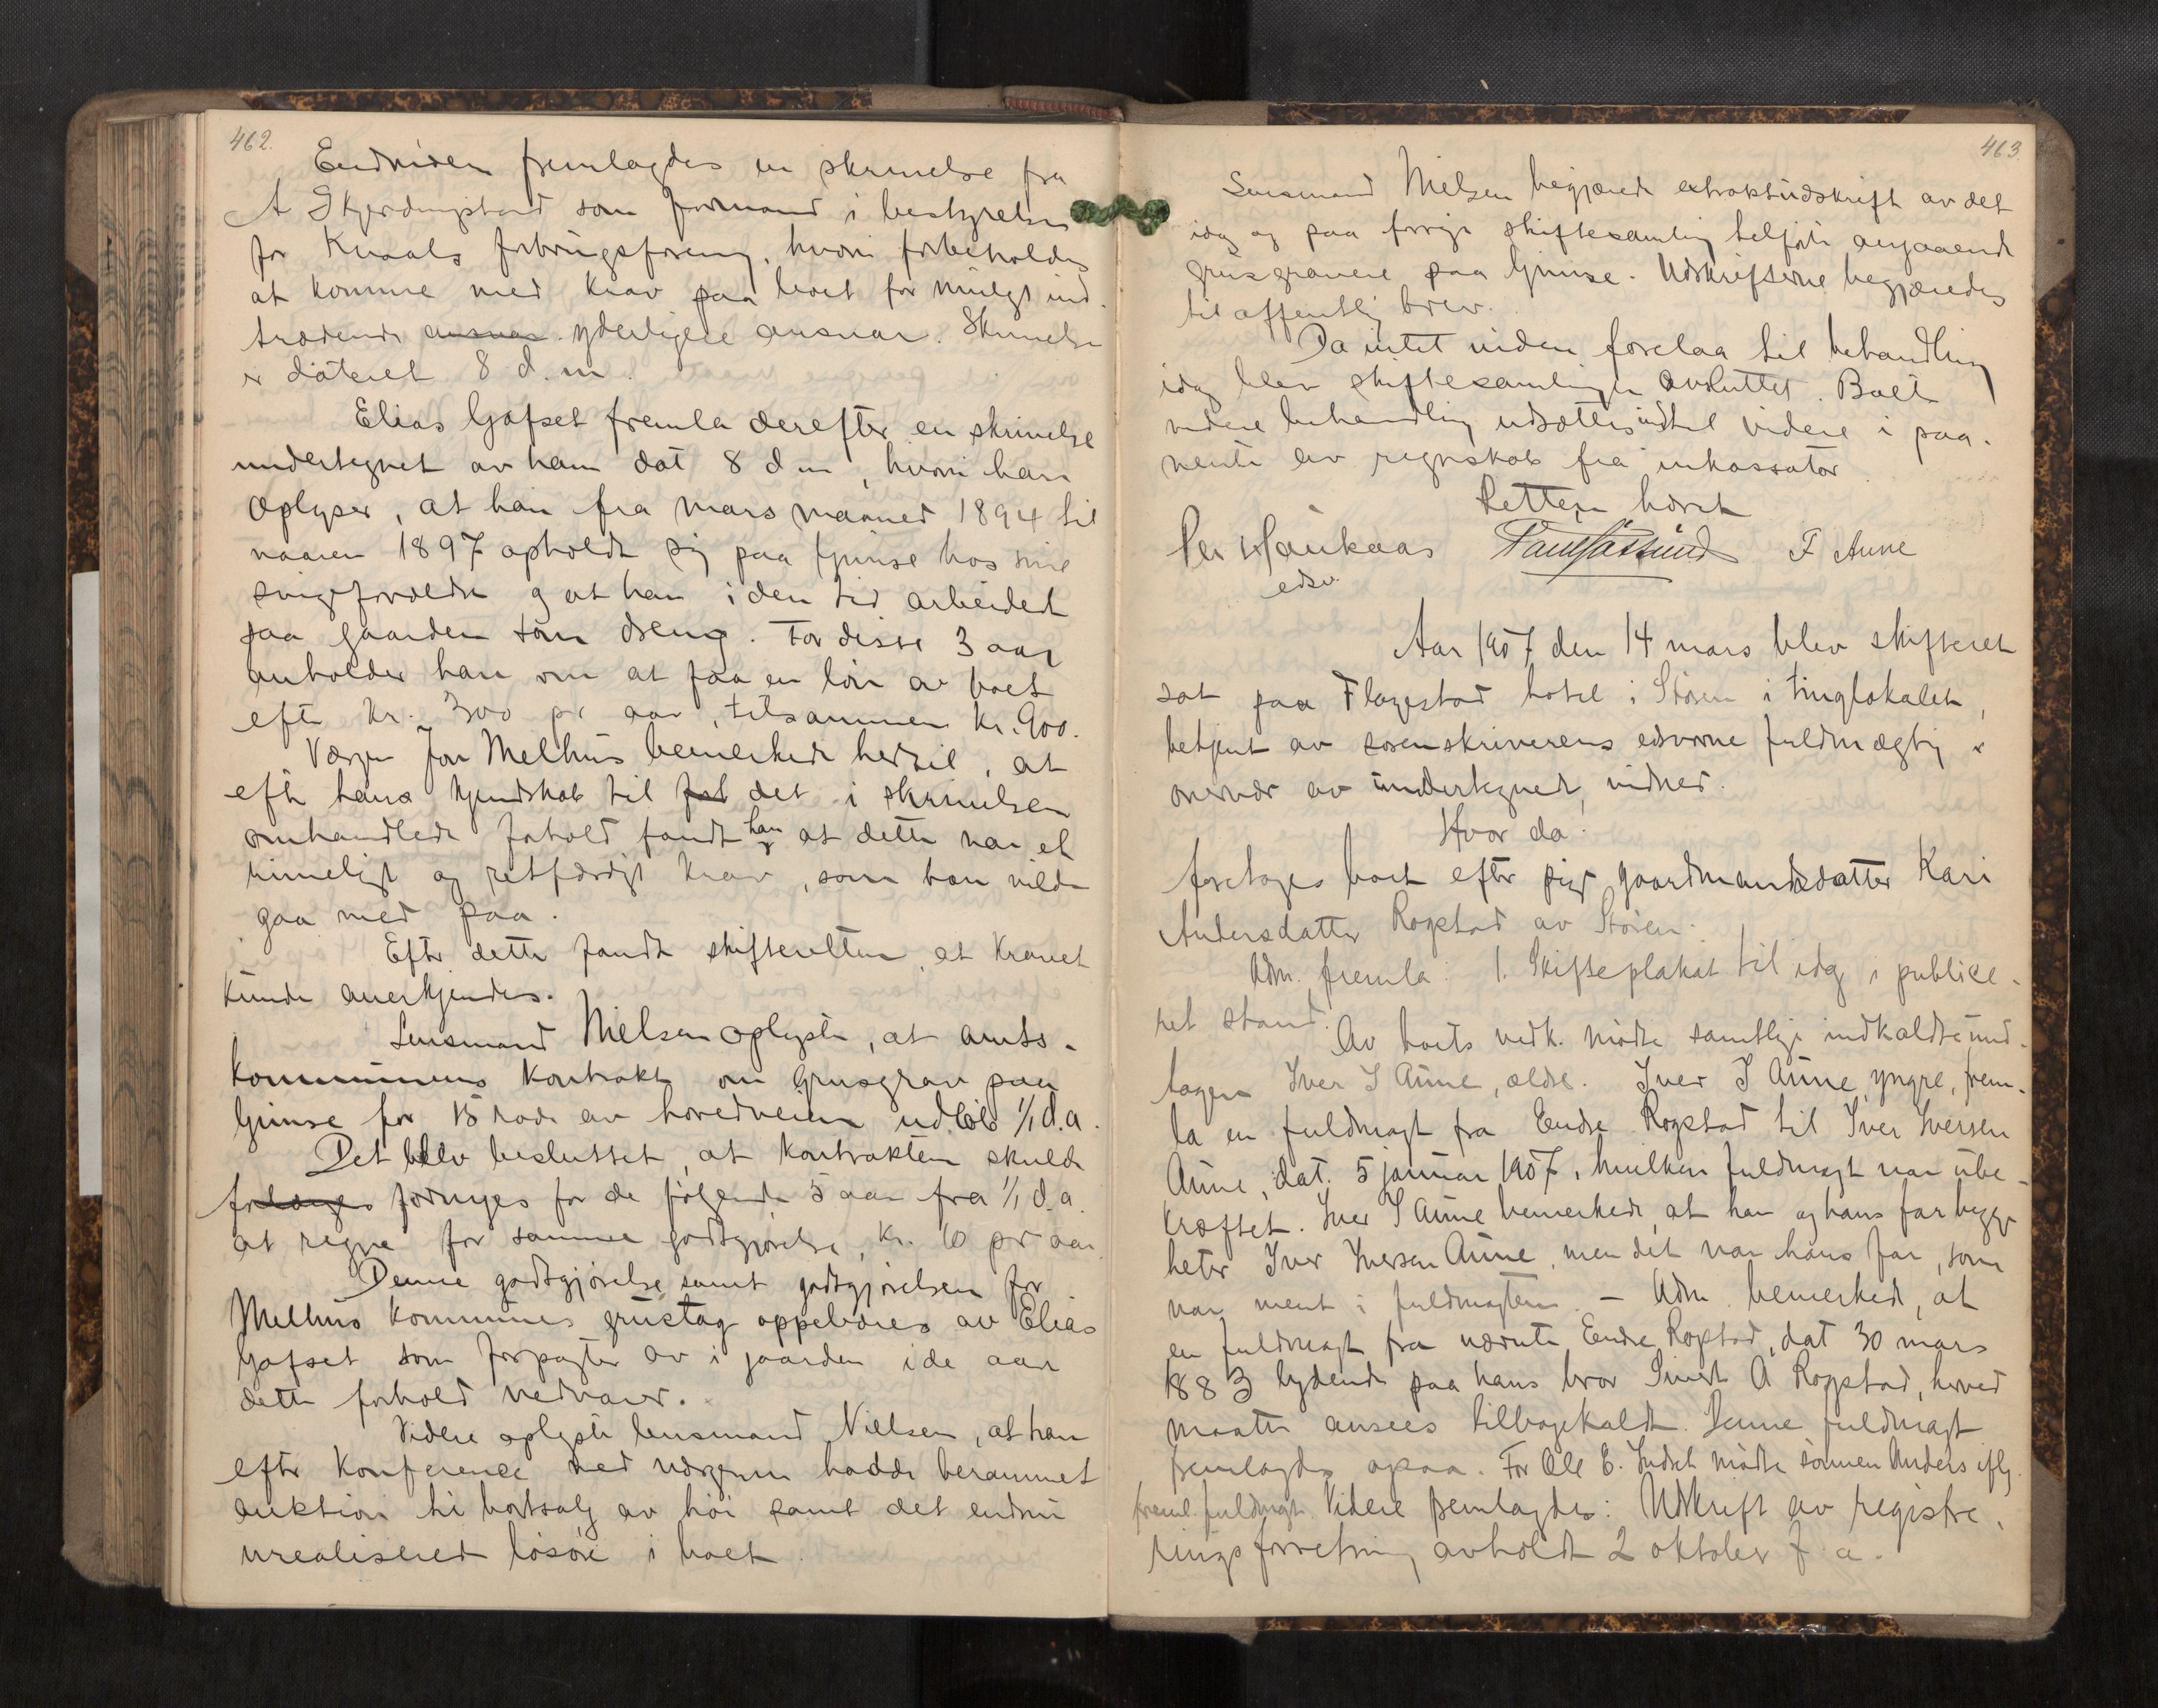 462.
Endvidere fremlagdes en skrivelse fra
A Skjerdingstad som formand i bestyrelsen
for Kvaals forbrugsforening, hvori forbeholdes
at komme med krav paa boet for muligt ind-
trædende ansvar yderligere ansvar. Skrivelsen
er dateret 8 d.m.
Elias Gofset fremla derefter en skrivelse
undertegnet av ham dat 8 d m, hvori han
oplyser, at han fra mars maaned 1894 til
vaaren 1897 opholdt sig paa Gimse hos sine
svigeforældre og at han i den tid arbeidet
paa gaarden som dreng. For disse 3 aar
anholder han om at faa en løn av boet
efter kr. 300 pr aar, tilsammen kr. 900.
Værgen Jon Melhus bemerkede hertil, at
efter hans kjendskab til det i skrivelsen
omhandlede forhold fandt han at dette var et
rimeligt og retfærdigt krav, som han vilde
gaa med paa.
Efter dette fandt skifteretten, at kravet
kunde anerkjendes.
Lensmand Nielsen oplyste, at amts-
kommunens kontrakt om grusgrav paa
Gimse for 15 rode av hovedveien udløb 1/1 d.a.
Det blev besluttet, at kontrakten skulde
forlænges fornyes for de følgende 5 aar fra 1/1 d.a.
at regne for samme godtgjørelse, kr. 10 pr aar.
Denne godtgjørelse samt godtgjørelsen for
Melhus kommunes grustag oppebæres av Elias
Gofset som forpagter av i gaarden i de aar
dette forhold vedvarer.
Videre oplyste lensmand Nielsen, at han
efter konference med værgerne hadde berammet
auktion til bortsalg av høi samt det endnu
urealiserede løsøre i boet.
463
Lensmand Nielsen begjærede extraktudskrift av det
idag og paa forrige skiftesamling tilførte angaaende
grusgravene paa Gimse. Udskrifterne begjæredes
til offentlig brev.
Da intet videre forelaa til behandling
idag blev skiftesamlingen avsluttet. Boets
videre behandling udsættes indtil videre i paa-
vente av regnskab fra inkassator.
Retten hævet
Per Haukaas Paul Gaasund F Aune
edsv.
Aar 1907 den 14 mars blev skifteret
sat paa Flagestad hotel i Støren i tinglokalet,
betjent av sorenskriverens edsvorne fuldmægtig i
overvær av undertegnede vidner.
Hvor da:
foretoges boet efter pige gaardmandsdatter Kari
Andersdatter Rogstad av Støren.
Adm. fremla: 1. Skifteplakat til idag i publice-
ret stand.
Av boets vedk. mødte samtlige indkaldte und-
tagen Iver I Aune, ældre. Iver I Aune, yngre, frem-
la en fuldmagt fra Endre Rogstad til Iver Iversen
Aune, dat. 5 januar 1907, hvilken fuldmagt var ube-
kræftet. Iver I Aune bemerkede, at han og hans far begge
heter Iver Iversen Aune, men det var hans far, som
var ment i fuldmagten. - Adm. bemerkede, at
en fuldmagt fra nævnte Endre Rogstad, dat 30 mars
1883 lydende paa hans bror Sivert A Rogstad, herved
maatte ansees tilbagekaldt. Denne fuldmagt
fremlagdes ogsaa. For Ole E. Indset mødte sønnen Anders iflg.
freml. fuldmagt. Videre fremlagdes: Udskrift av registre-
ringsforretning avholdt 2 oktober f. a.